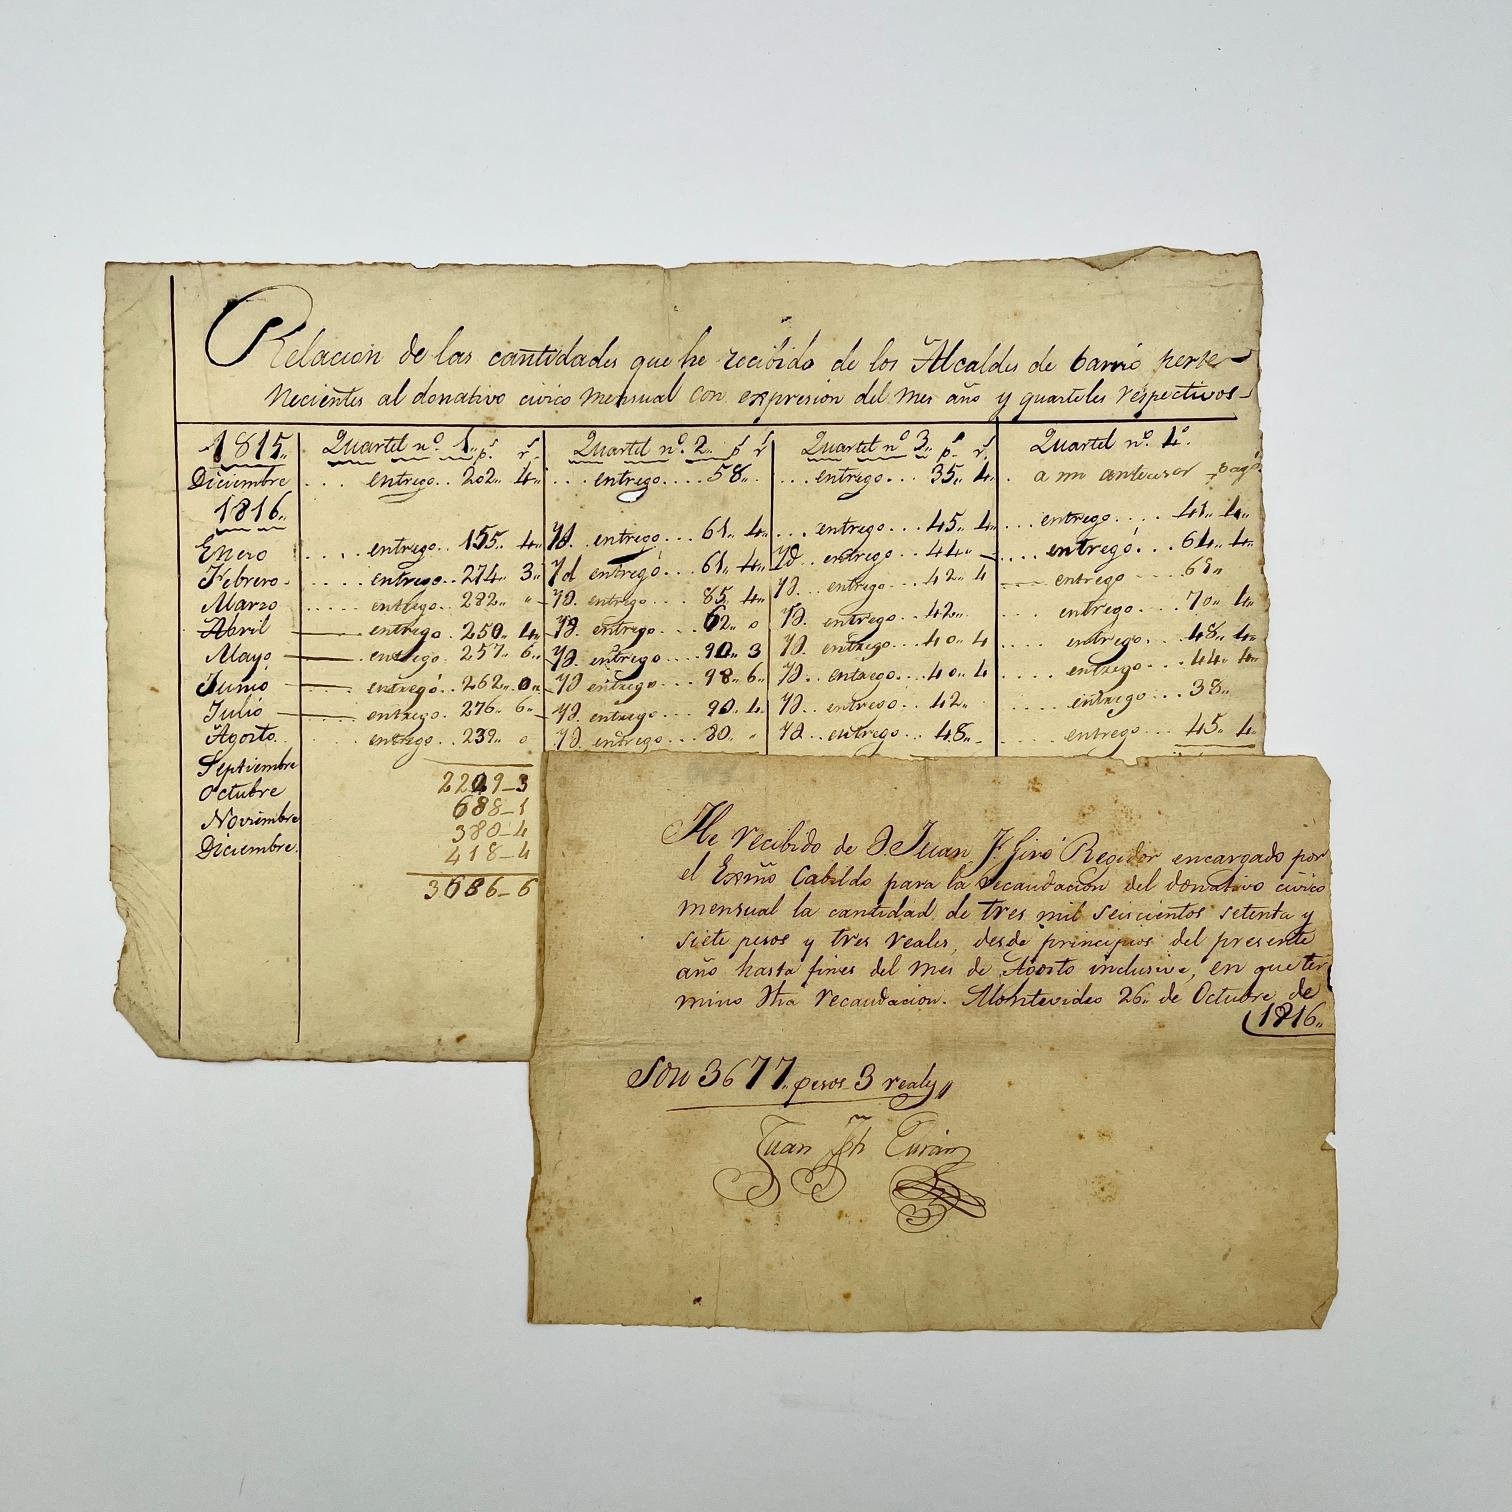 Relacion de las cantidades que he recibido de los Alcaldes de barrio perte-
necientes al donativo civico mensual con expresion del mes año y quarteles respectivos
1815,, Quartel nº. 1,, pˢ. rˢ. Quartel nº. 2,, pˢ rˢ Quartel nº 3,, pˢ. rˢ. Quartel nº. 4º.
Diciembre ... entrego.. 202,, 4,, ... entrego.... 58,, ... entrego... 35,, 4,, . a mi antecesor pagó
1816,,
Enero .... entrego.. 155,, 4,, Yd. entrego... 61,, 4,, ... entrego... 45,, 4,, ... entrego.... 41,, 4,,
Febrero .... entrego.. 274,, 3,, Yd entregó... 61,, 4,, Yd.. entrego... 44,, .... entregó.... 64,, 4,,
Marzo ..... entrego.. 282,, " Yd. entrego... 85,, 4,, Yd... entrego.... 42,, 4 entrego .... 61,,
Abril entrego. 250,, 4,, Yd. entrego... 62,, 0 Yd. entrego... 42,, .... entrego... 70,, 4,,
Mayo entrego. 257,, 6,, Yd. entrego.... 90,, 3 Yd. entrego... 40,, 4 .... entrego.... 48,, 4,,
Junio entregó. 262,, 0,, Yd entrego... 98,, 6,, Yd.. entrego.... 40,, 4 .... entrego... 44,, 4,,
Julio entrego. 276,, 6,, Yd. entrego... 90,, 4 Yd. entrego... 42,, .... entrego... 38,,
Agosto. .... entrego.. 239,, 0 Yd. entrego... 80,, " Yd. entrego... 48,, .... entrego... 45,, 4,,
Septiembre
Octubre 2209-3
Noviembre 688-1
Diciembre. 380-4
418-4
3686-6
He recibido de D. Juan F. Giró Regidor encargado por
el Exmõ Cabildo para la recaudacion del donativo civico
mensual la cantidad de tres mil seiscientos setenta y
siete pesos y tres reales, desde principios del presente
año hasta fines del mes de Agosto inclusive, en que ter
mino dha recaudacion. Montevideo 26,, de Octubre de
1816,,
Son 3677,, pesos 3 reales,,
Juan Jph Duran